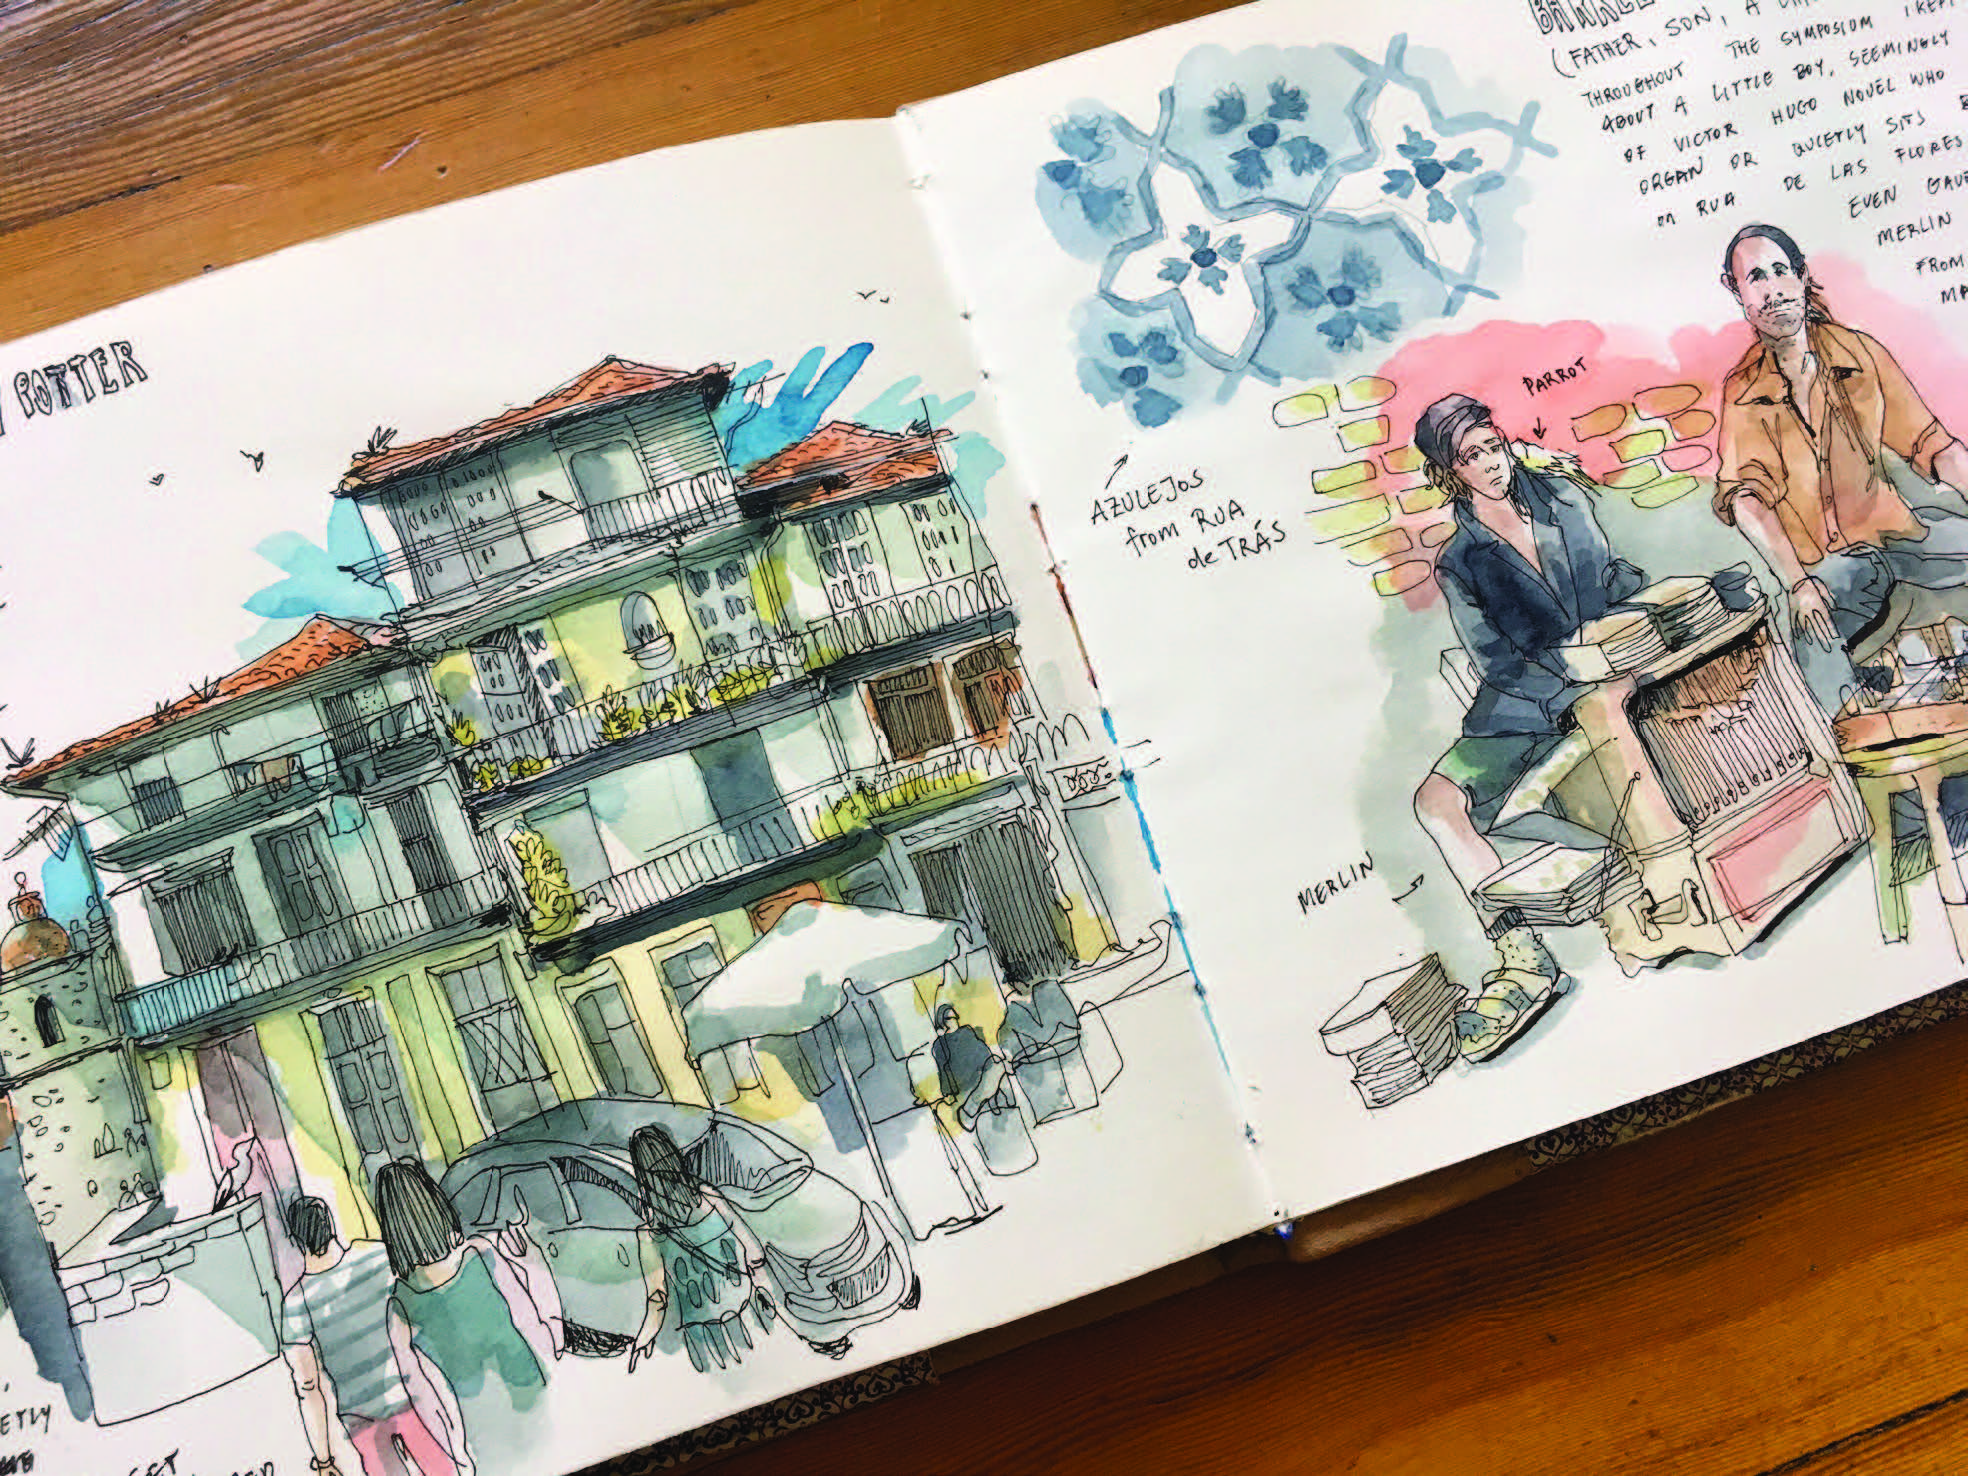 POTTER
ETLY
BARREL
(FATHER, SON, A
THROUGHOUT THE SYMPOSIUM I KEPT
ABOUT A LITTLE BOY, SEEMINGLY
OF VICTOR HUGO NOVEL WHO
ORGAN OR QUIETLY SITS
on RUA DE LAS FLORES
EVEN GAVE
MERLIN
FROM
MA
PARROT
AZULEJOS
from RUA
de TRÁS
MERLIN